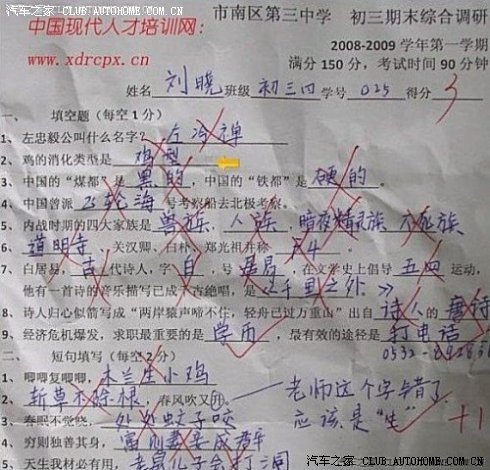 汽车之家 CLUB.AUTOHOME.COM.CN
市南区第三中学 初三期末综合调研
中国现代人才培训网:
www.xdrcpx.cn
2008-2009 学年第一学期
满分 150 分，考试时间 90 分钟
姓名 刘晓 班级 初三四 学号 025 得分 3
一、 填空题（每空 1 分）
1、左忠毅公叫什么名字？ 左冷禅
2、鸡的消化类型是 鸡型
3、中国的“煤都”是 黑的 ，中国的“铁都”是 硬的 。
4、中国曾派 飞轮海 号考察船去北极考察。
5、内战时期的四大家族是 兽族、人族、暗夜精灵族、不死族
6、道明寺、关汉卿、白朴、郑光祖并称 F4 。
7、白居易，吉代诗人，字 自，号 居易，在文学史上倡导 五四 运动，
他有一首诗的音乐描写已成千古绝唱，是《千里之外》
8、诗人归心似箭写成“两岸猿声啼不住，轻舟已过万重山”出自 诗人 的 唐诗
9、经济危机爆发，求职最重要的是 学历 ，最有效的途径是 打电话
二、 短句填写（每空 2 分）
1、唧唧复唧唧，木兰生小鸡
2、斩草不除根，春风吹又升。
老师这个字错了
应该是“生” +1
3、春眠不觉晓，处处蚊子咬
4、穷则独善其身，富则妻妾成群
5、天生我材必有用，老鼠儿子会打洞
汽车之家 CLUB.AUTOHOME.COM.CN